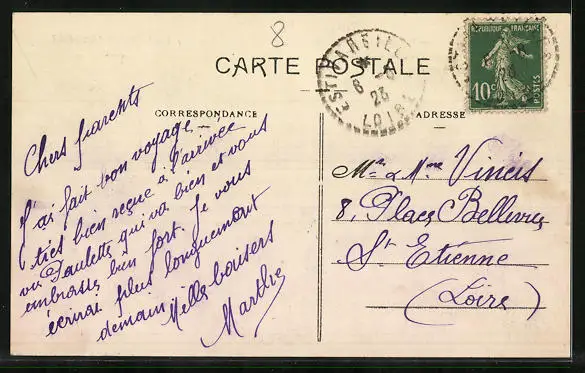 8
CARTE POSTALE
CORRESPONDANCE
ADRESSE
RÉPUBLIQUE FRANÇAISE
10c
23
LOIRE
Chers parents
J'ai fait bon voyage,
très bien reçue à l'arrivée
vu Paulette qui va bien et vous
embrasse bien fort. Je vous
écrirai plus longuement
demain Mille baisers
Marthe
Mr & Mme Vincis
8, Place Bellevue
St Etienne
(Loire)